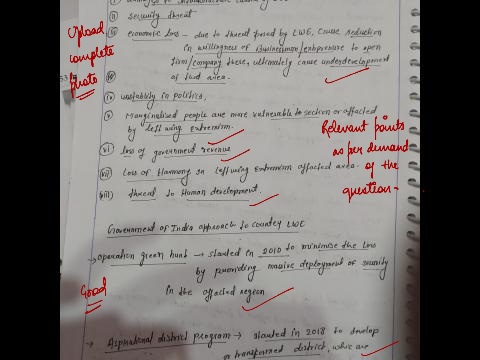 ii) security threat
iii) economic loss - due to thread posed by LWE, cause reduction
in willingness of Businessman/entrepreneur to open
firm/company there, ultimately cause underdevelopment
of that area.
iv) instability in politics.
v) Marginalised people are more vulnerable to section or affected
by left wing extremism.
vi) loss of government revenue
vii) Loss of Harmony in left wing extremism affected area.
viii) threat to Human development.
Upload
complete
photo
Relevant points
as per demand
of the
question-
Government of India approach to country LWE
→ operation green hunt → started in 2010 to minimise the loss
by providing massive deployment of security
in the affected region
Good
→ Aspirational district program → started in 2018 to develop
a transformed district, which are